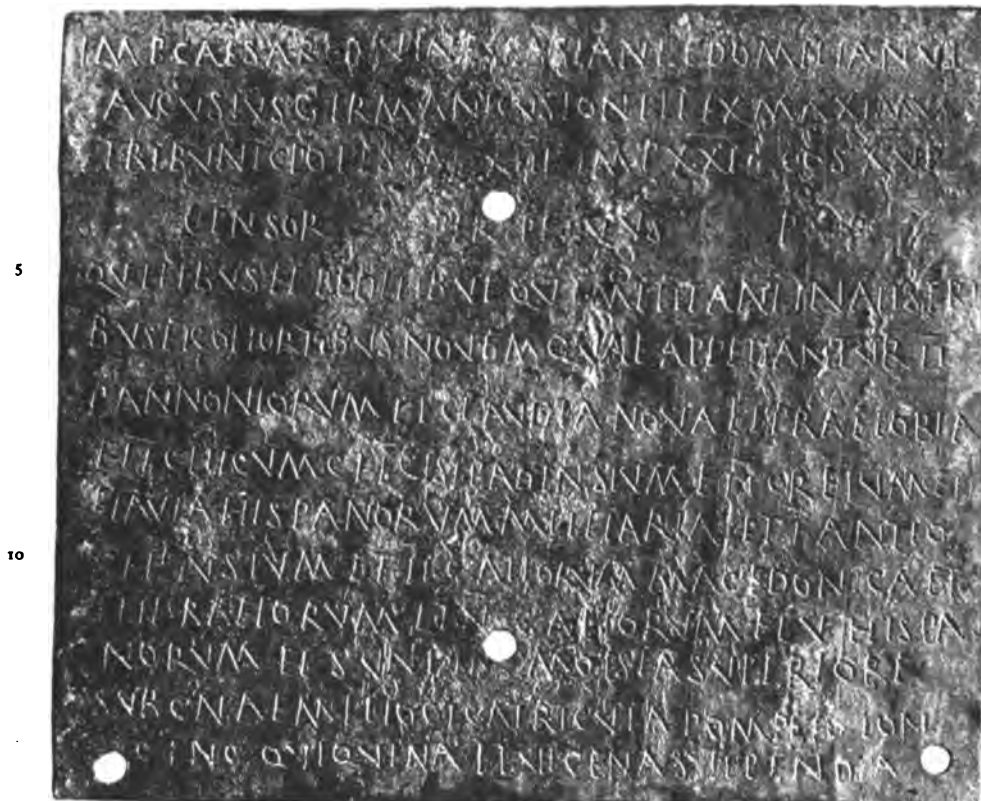 IMP CAESAR DIVI VESPASIANI F DOMITIANVS
AVGVSTVS GERMANICVS PONTIFEX MAXIMVS
TRIBVNIC POTESTAT IMP XXII COS XVI
CENSOR PERPETVVS P P
5 EQVITIBVS ET PEDITIBVS QVI MILITANT IN ALIS TRI
BVS ET COHORTIBVS NOVEM QVAE APPELLANTVR II
PANNONIORVM ET CLAVDIA NOVA ET PRAETORIA
ET I CILICVM C R ET I CISIPADENSIVM ET I CRETVM ET
I FLAVIA HISPANORVM MILLIARIA ET I ANTIO
10 CHENSIVM ET II GALLORVM MACEDONICA ET
IIII RAETORVM ET V GALLORVM ET V HISPA
NORVM ET SVNT IN MOESIA SVPERIORE
SVB CN AEMILIO CICATRICVLA POMPEIO LON
GINO QVI QVINA ET VICENA STIPENDIA